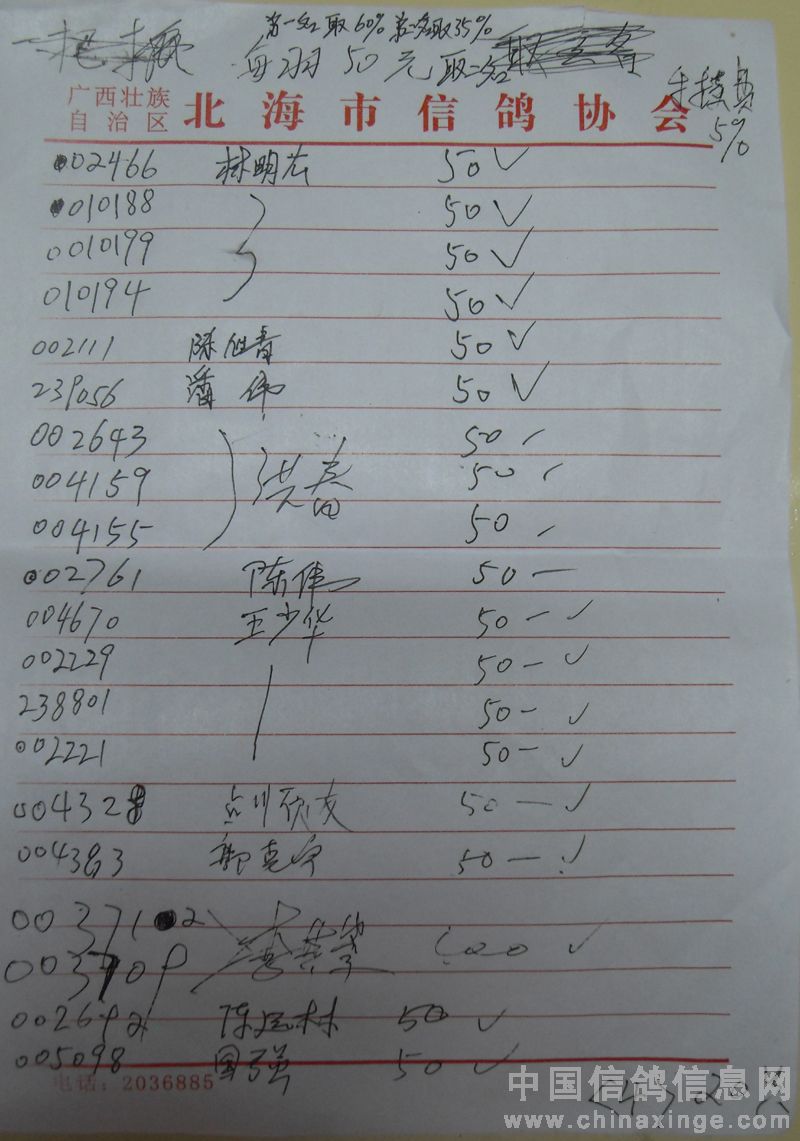 第一名取60% 第二名取35%
每羽50元取二名
手续费
5%
广西壮族
自治区
北海市信鸽协会
002466 林明 50 ✓
010188 50 ✓
0010199 50 ✓
010194 50 ✓
002111 陈 50 ✓
239056 潘伟 50 ✓
002643 50
004159 洪春 50
004155 50
002761 陈伟 50 —
004670 王少华 50 — ✓
002229 50 — ✓
238801 50 — ✓
002221 50 — ✓
004328 50 — ✓
004383 50 — ✓
003712
003709 ✓
002692 陈 林 50 ✓
005098 国强 50 ✓
电话：2036885
中国信鸽信息网
www.chinaxinge.com